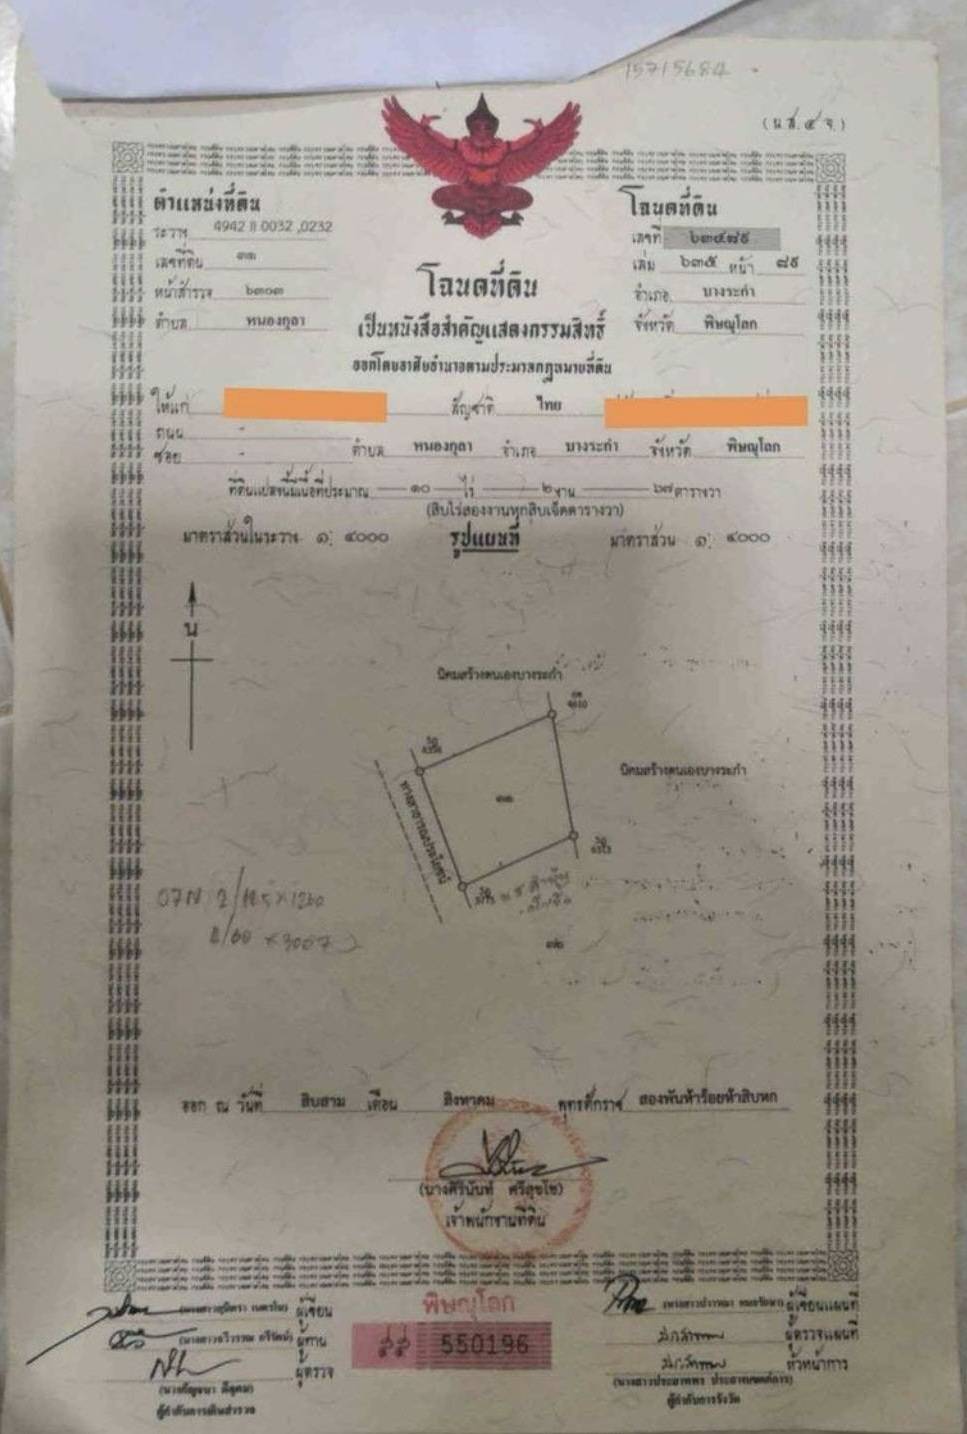 15715684
(น.ส.๔ จ.)
ตำแหน่งที่ดิน
ระวาง 4942 II 0032 ,0232
เลขที่ดิน ๓๓
หน้าสำรวจ ๖๓๐๓
ตำบล หนองกุลา
โฉนดที่ดิน
เลขที่ ๖๓๔๗๙
เล่ม ๖๓๕ หน้า ๗๙
อำเภอ บางระกำ
จังหวัด พิษณุโลก
โฉนดที่ดิน
เป็นหนังสือสำคัญแสดงกรรมสิทธิ์
ออกโดยอาศัยอำนาจตามประมวลกฎหมายที่ดิน
ให้แก่ สัญชาติ ไทย
ถนน -
ซอย - ตำบล หนองกุลา อำเภอ บางระกำ จังหวัด พิษณุโลก
ที่ดินแปลงนี้มีเนื้อที่ประมาณ ๑๐ ไร่ ๒ งาน ๖๗ ตารางวา
(สิบไร่สองงานหกสิบเจ็ดตารางวา)
มาตราส่วนในระวาง ๑: ๔๐๐๐ รูปแผนที่ มาตราส่วน ๑: ๔๐๐๐
น
นิคมสร้างตนเองบางระกำ
นิคมสร้างตนเองบางระกำ
๓๓
ทางสาธารณประโยชน์
๓๒
ออก ณ วันที่ สิบสาม เดือน สิงหาคม พุทธศักราช สองพันห้าร้อยห้าสิบหก
(นางศิรินันท์ ศรีสุขโข)
เจ้าพนักงานที่ดิน
ผู้เขียน
ผู้ทาน
ผู้ตรวจ
(นางกัญจนา ดีอุดม)
ผู้กำกับการเดินสำรวจ
พิษณุโลก
550196
ผู้เขียนแผนที่
ผู้ตรวจแผนที่
หัวหน้าการ
ผู้กำกับการรังวัด